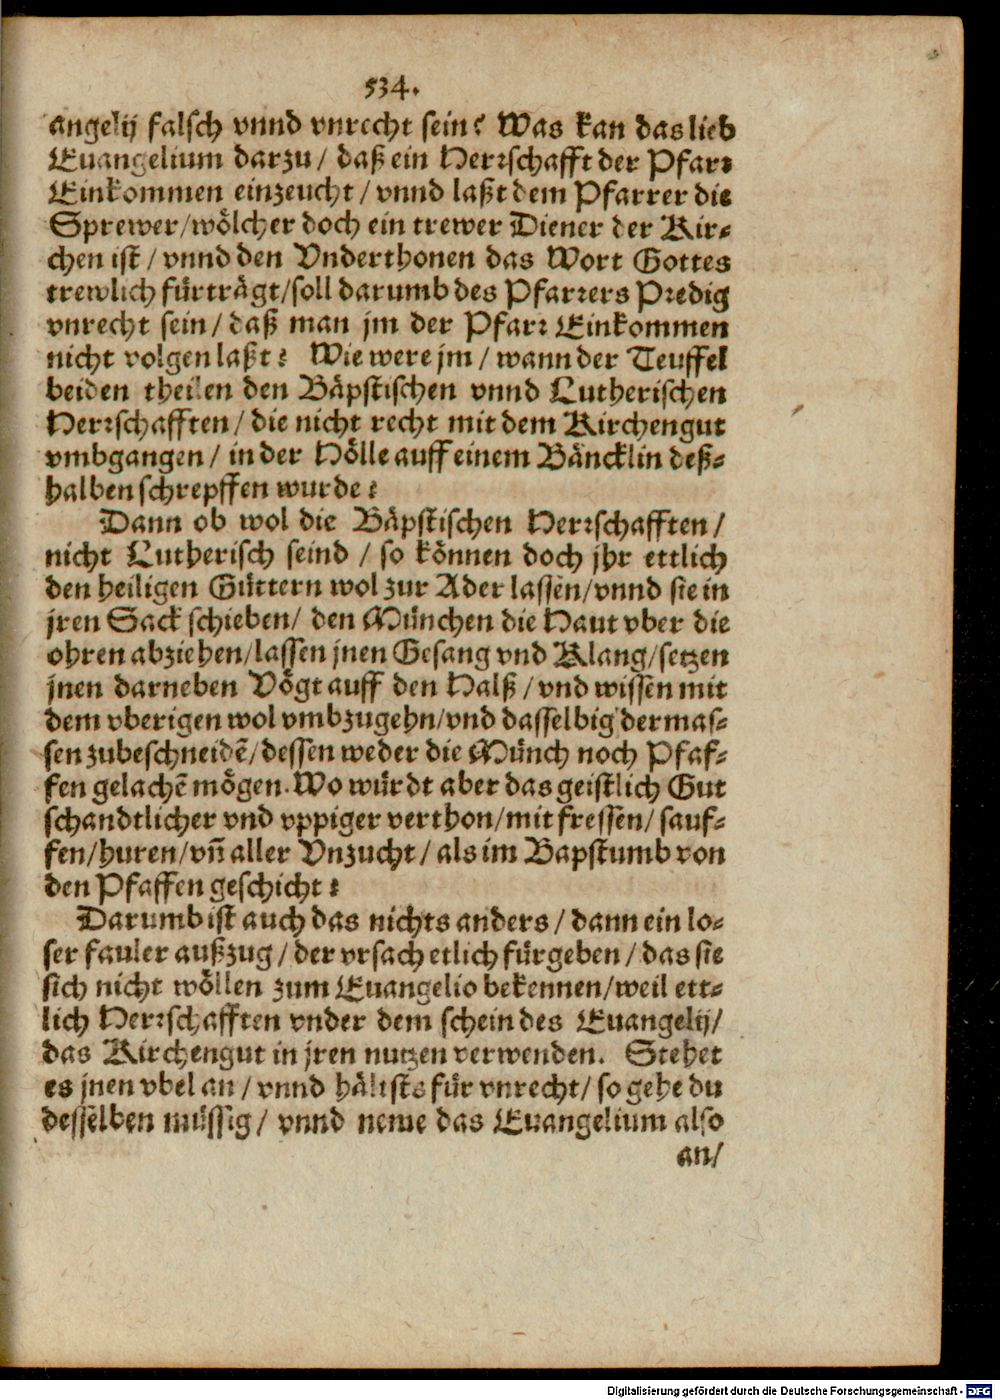 534.
angelij falsch vnnd vnrecht sein? Was kan das lieb
Euangelium darzu/ daß ein Herrschafft der Pfarr
Einkommen einzeucht/ vnnd laßt dem Pfarrer die
Sprewer/wölcher doch ein trewer Diener der Kir-
chen ist/ vnnd den Vnderthonen das Wort Gottes
trewlich fürträgt/soll darumb des Pfarrers Predig
vnrecht sein/ daß man jm der Pfarr Einkommen
nicht volgen laßt? Wie were jm/ wann der Teuffel
beiden theilen den Bäpstischen vnnd Lutherischen
Herrschafften/ die nicht recht mit dem Kirchengut
vmbgangen/ in der Hölle auff einem Bäncklin deß-
halben schrepffen wurde?
Dann ob wol die Bäpstischen Herrschafften/
nicht Lutherisch seind/ so können doch jhr ettlich
den heiligen Güttern wol zur Ader lassen/vnnd sie in
jren Sack schieben/ den München die Haut vber die
ohren abziehen/lassen jnen Gesang vnd Klang/setzen
jnen darneben Vögt auff den Halß/ vnd wissen mit
dem vberigen wol vmbzugehn/vnd dasselbig dermas-
sen zubeschneidẽ/dessen weder die Münch noch Pfaf-
fen gelachẽ mögen. Wo würdt aber das geistlich Gut
schandtlicher vnd vppiger verthon/mit fressen/ sauf-
fen/huren/vñ aller Vnzucht/ als im Bapstumb von
den Pfaffen geschicht?
Darumb ist auch das nichts anders/ dann ein lo-
ser fauler außzug/ der vrsach etlich fürgeben/ das sie
sich nicht wöllen zum Euangelio bekennen/weil ett-
lich Herrschafften vnder dem schein des Euangelij/
das Kirchengut in jren nutzen verwenden. Stehet
es jnen vbel an/ vnnd hältsts für vnrecht/ so gehe du
desselben müssig/ vnnd neme das Euangelium also
an/
Digitalisierung gefördert durch die Deutsche Forschungsgemeinschaft - DFG